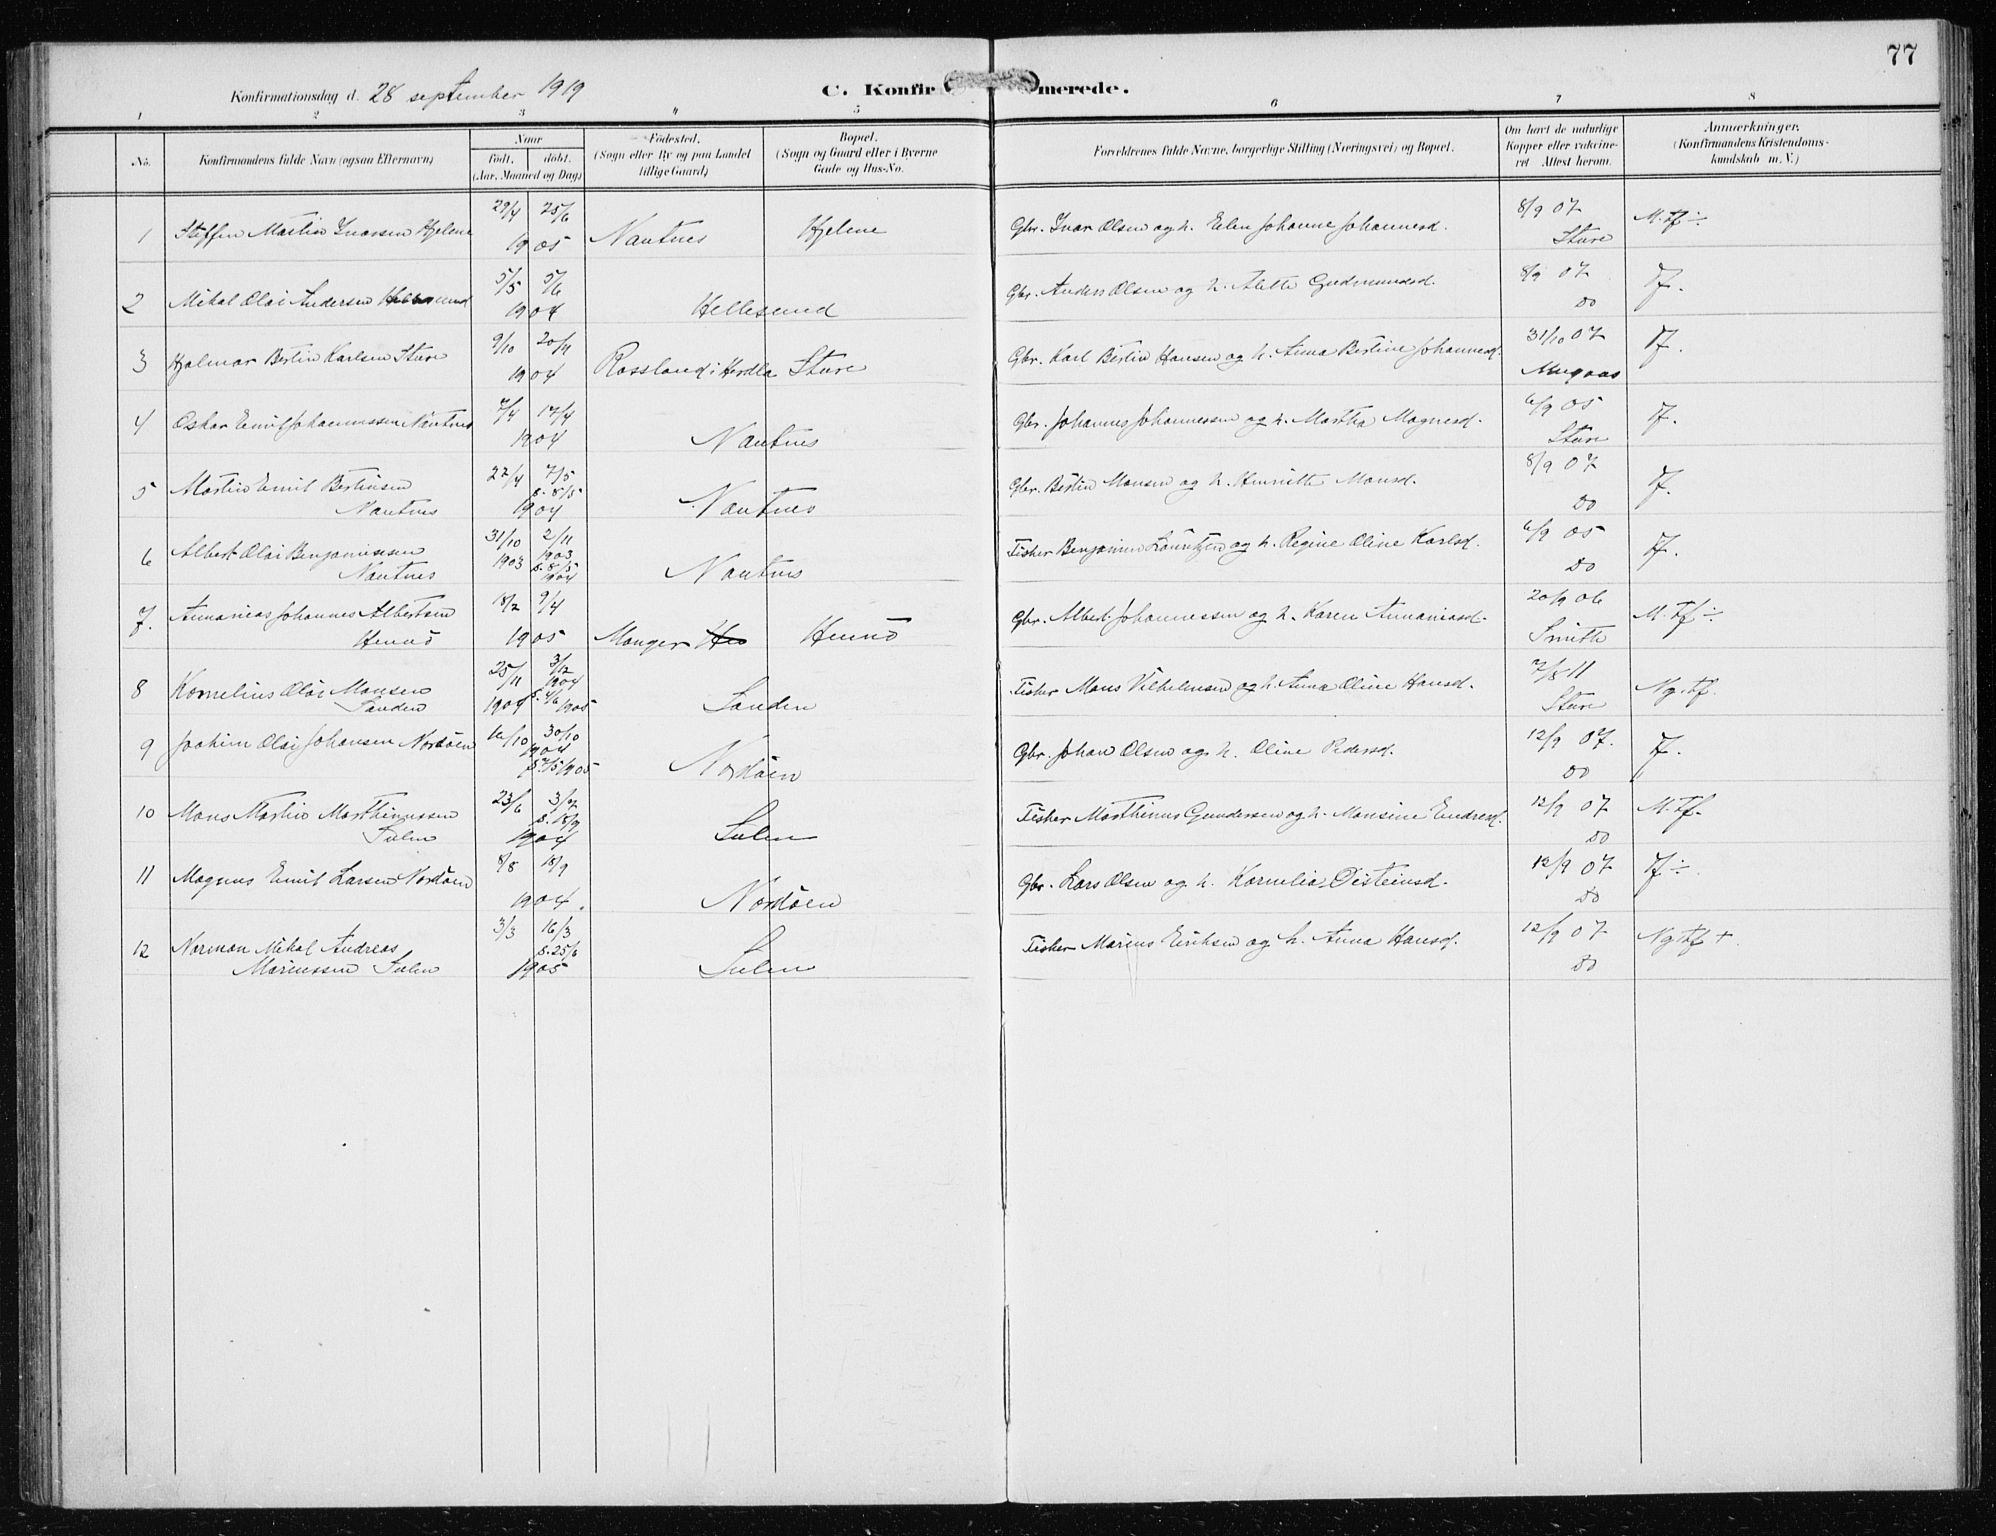 77
Konfirmationsdag d. 28 september 1919
C. Konfirmerede.
1 2 3 4 5 6 7 8
No.
Konfirmandens fulde Navn (ogsaa Efternavn)
Naar
født. døbt.
(Aar, Maaned og Dag)
Fødested.
(Sogn eller By og paa Landet
tillige Gaard)
Bopæl.
(Sogn og Gaard eller i Byerne
Gade og Hus-No.
Forældrenes fulde Navne, borgerlige Stilling (Næringsvei) og Bopæl.
Om havt de naturlige
Kopper eller vakcine-
ret Attest herom.
Anmærkninger.
(Konfirmandens Kristendoms-
kundskab m. V.)
1 Steffen Martin Ivarsen Hjelme 29/4 25/6 1905 Nautnes Hjelme Gbr. Ivar Olsen og h. Elen Johanne Johannesd. 8/9 07 Sture M.tf ÷
2 Mikal Olai Andersen Hellesund 5/5 5/6 1904 Hellesund Gbr. Anders Olsen og h. Alette Gudmundsd. 8/9 07 Do Tf.
3 Hjalmar Bertin Karlsen Sture 9/10 20/11 1904 Rossland i Herdla Sture Gbr. Karl Bertin Hansen og h. Anna Bertine Johannesd. 31/10 07 Mugaas Tf.
4 Oskar Emil Johannessen Nautnes 7/4 17/4 1904 Nautnes Gbr. Johannes Johannessen og h. Martha Magnesd. 6/9 05 Sture Tf.
5 Martin Emil Bertinsen
Nautnes 22/4 7/5 s. 8/5 1904 Nautnes Gbr. Bertin Monsen og h. Henriette Monsd. 8/9 07 Do Tf.
6 Albert Olai Benjaminsen
Nautnes 31/10 1903 2/11 1903 s. 8/5 1904 Nautnes Fisker Benjamin Lauritzen og h. Regine Oline Karlsd. 6/9 05 Do Tf.
7. Annanias Johannes Albertsen
Hernø 18/2 9/4 1905 Manger Hernø Gbr. Albert Johannessen og h. Karen Annaniasd. 20/9 06 Smith M.Tf ÷
8 Kornelius Olai Monsen
Sanden 25/11 1904 3/12 1904 s. 4/6 1905 Sanden Fisker Mons Vilhelmsen og h. Anna Oline Hansd. 7/8 11 Sture Ng.tf.
9 Joakim Olai Johansen Nordøen 16/10 30/10 1904 s. 7/5 1905 Nordøen Gbr. Johan Olsen og h. Oline Pedersd. 12/9 07. Do Tf.
10 Mons Martin Marthinussen
Sulen 23/6 3/7 s. 18/9 1904 Sulen Fisker Marthinus Gundersen og h. Monsine Endresd. 12/9 07 Do M.tf.
11 Magnus Emil Larsen Nordøen 8/8 18/9 1904. Nordøen Gbr. Lars Olsen og h. Kornelia Oisteinsd. 12/9 07 Do Tf ÷.
12 Norman Mikal Andreas
Mariussen Sulen 3/3 16/3 s. 25/6 1905 Sulen Fisker Marius Eriksen og h. Anna Hansd. 12/9 07 Do Ng tf +